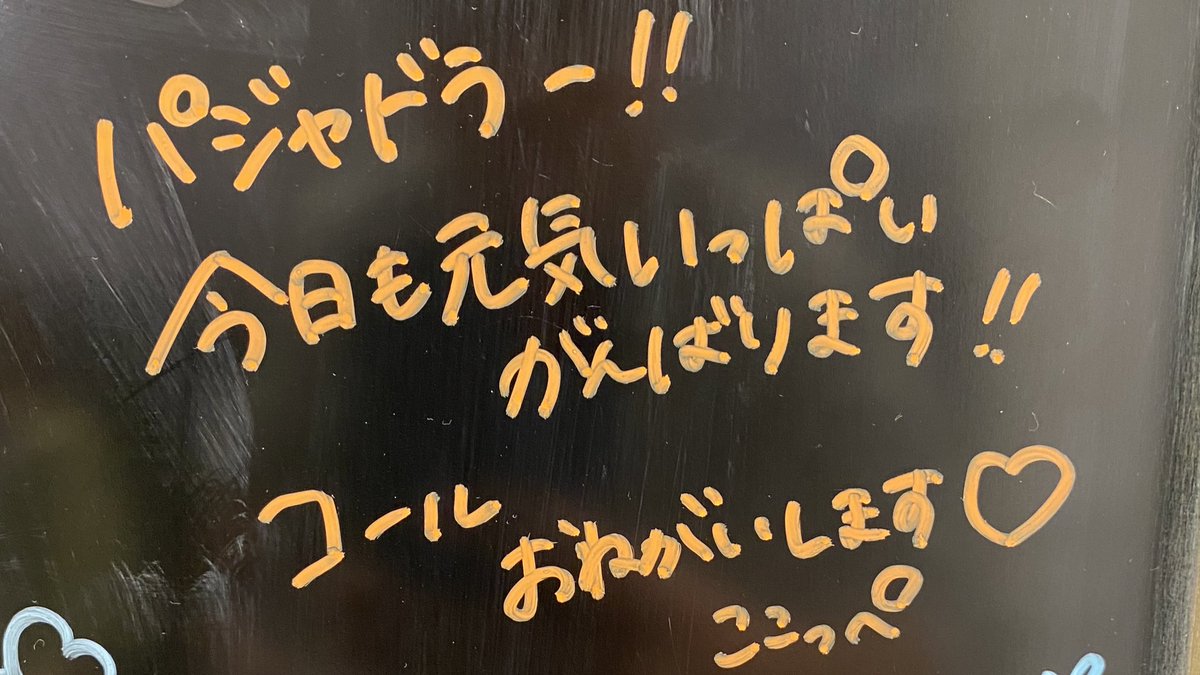 パジャドラー!!
今日も元気いっぱい
がんばります!!
コール
おねがいします♡
ここっぺ